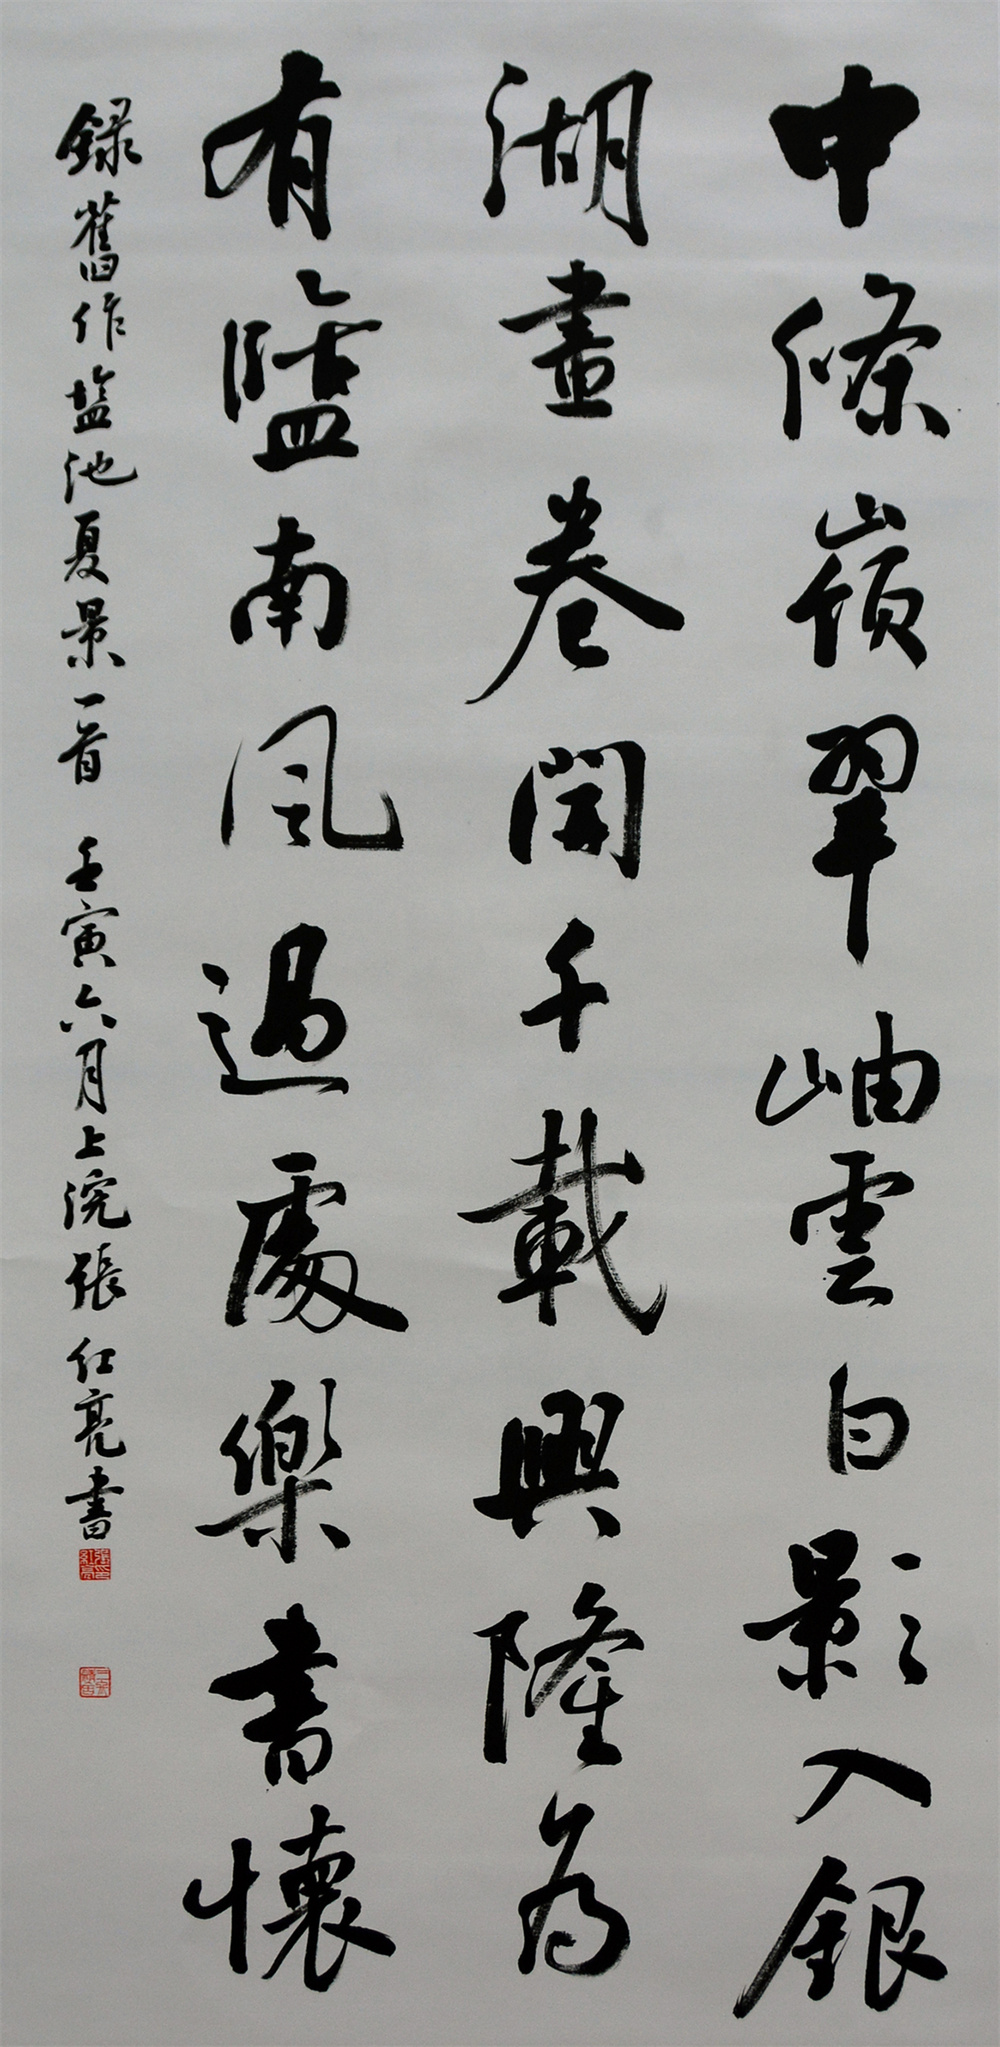 中條嶺翠岫雲白影入銀
湖畫卷開千載興隆為
有鹽南风過處樂書懷
錄舊作盐池夏景一首 壬寅六月上浣張红亮書